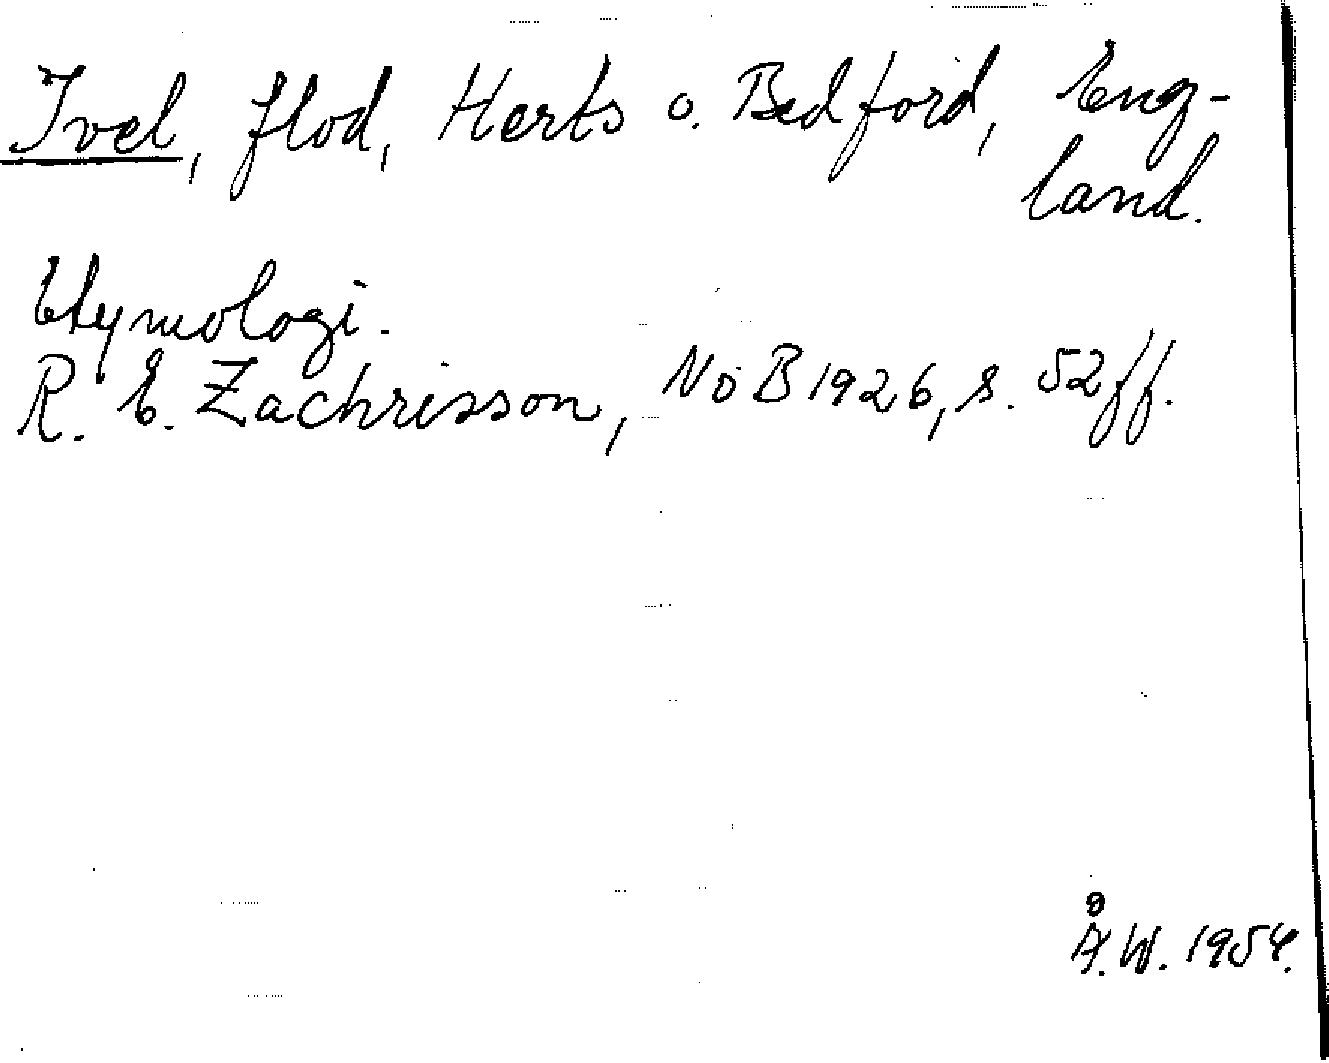 Ivel, flod, Herts o. Bedford, Eng-
land.
Etymologi.
R. E. Zachrisson, NoB 1926, s. 52 ff.
Å. W. 1954.